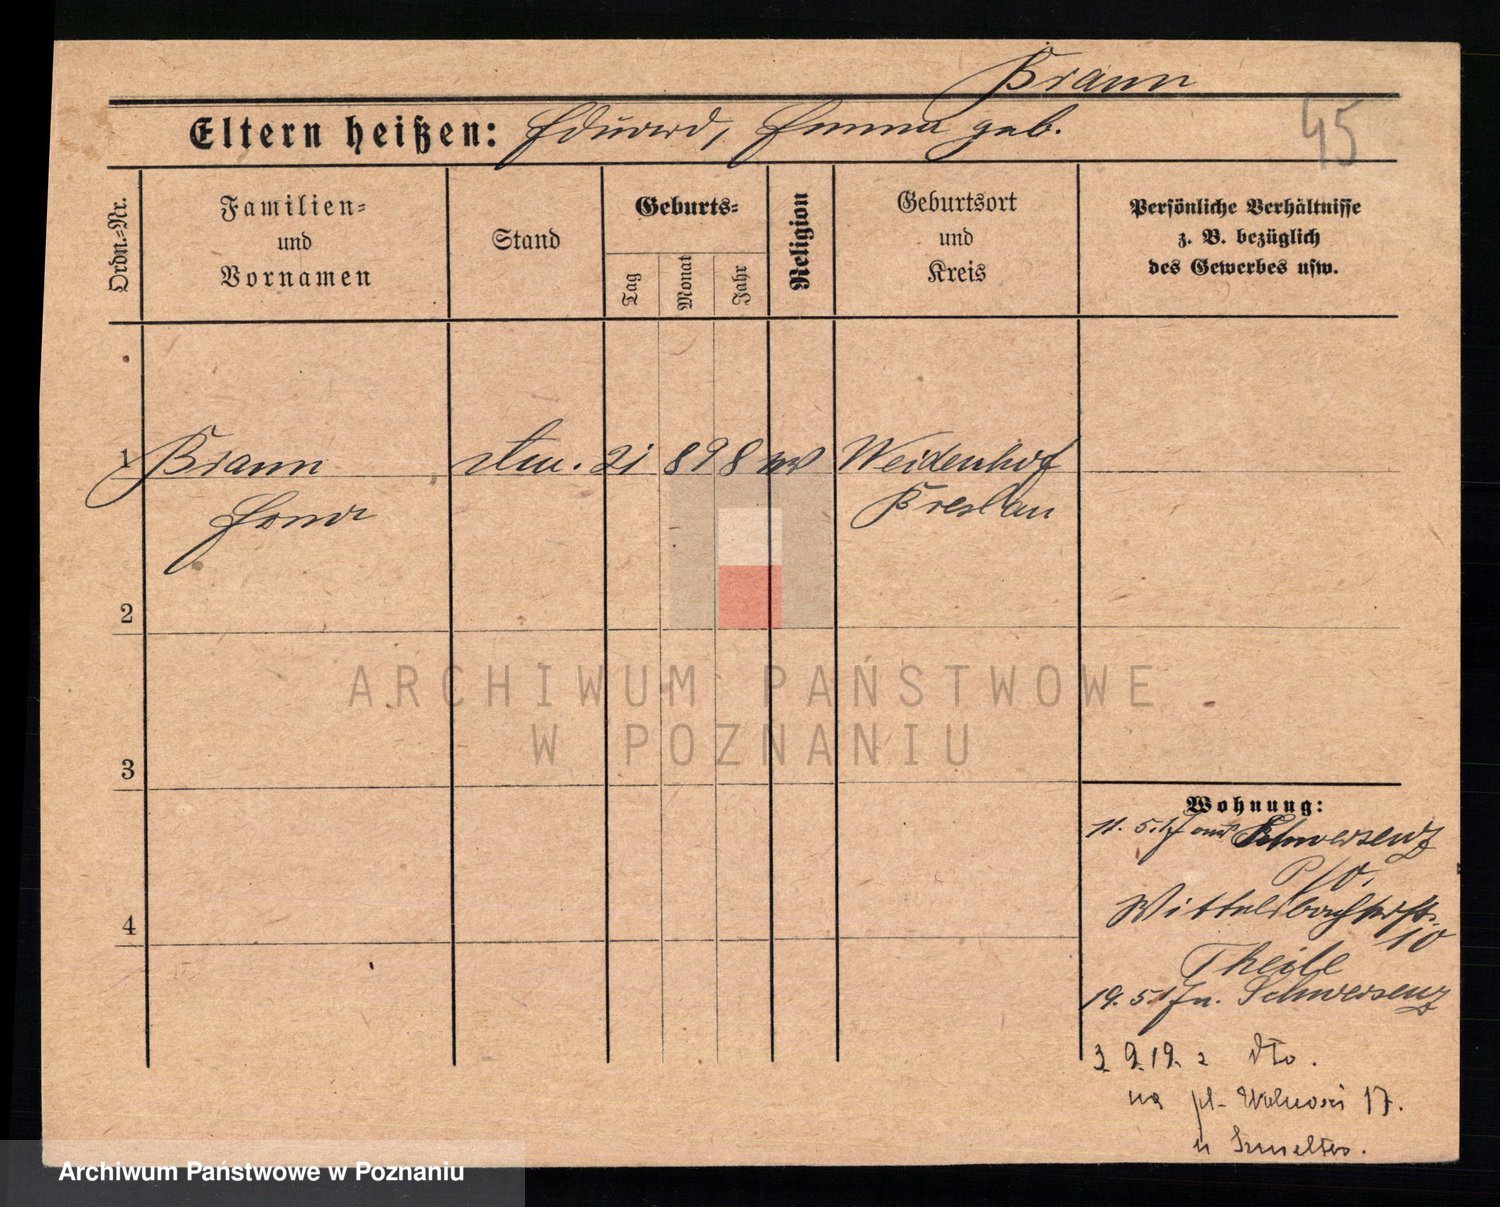 Braun
Eltern heißen: Eduard, Emma geb.
45
Ordn.=Nr.
Familien=
und
Vornamen
Stand
Geburts=
Tag
Monat
Jahr
Religion
Geburtsort
und
Kreis
Persönliche Verhältnisse
z. B. bezüglich
des Gewerbes usw.
1 Braun 21 8 98 Weidenhof
Breslau
2
ARCHIWUM PAŃSTWOWE
W POZNANIU
3
Wohnung:
11. 5. 17 Schwersenz
4
Wittelsbacherstr.
10
Theile
19. 5. 17 n. Schwersenz
3. 9. 19. z dto.
na pl. Wolności 17.
u
Archiwum Państwowe w Poznaniu